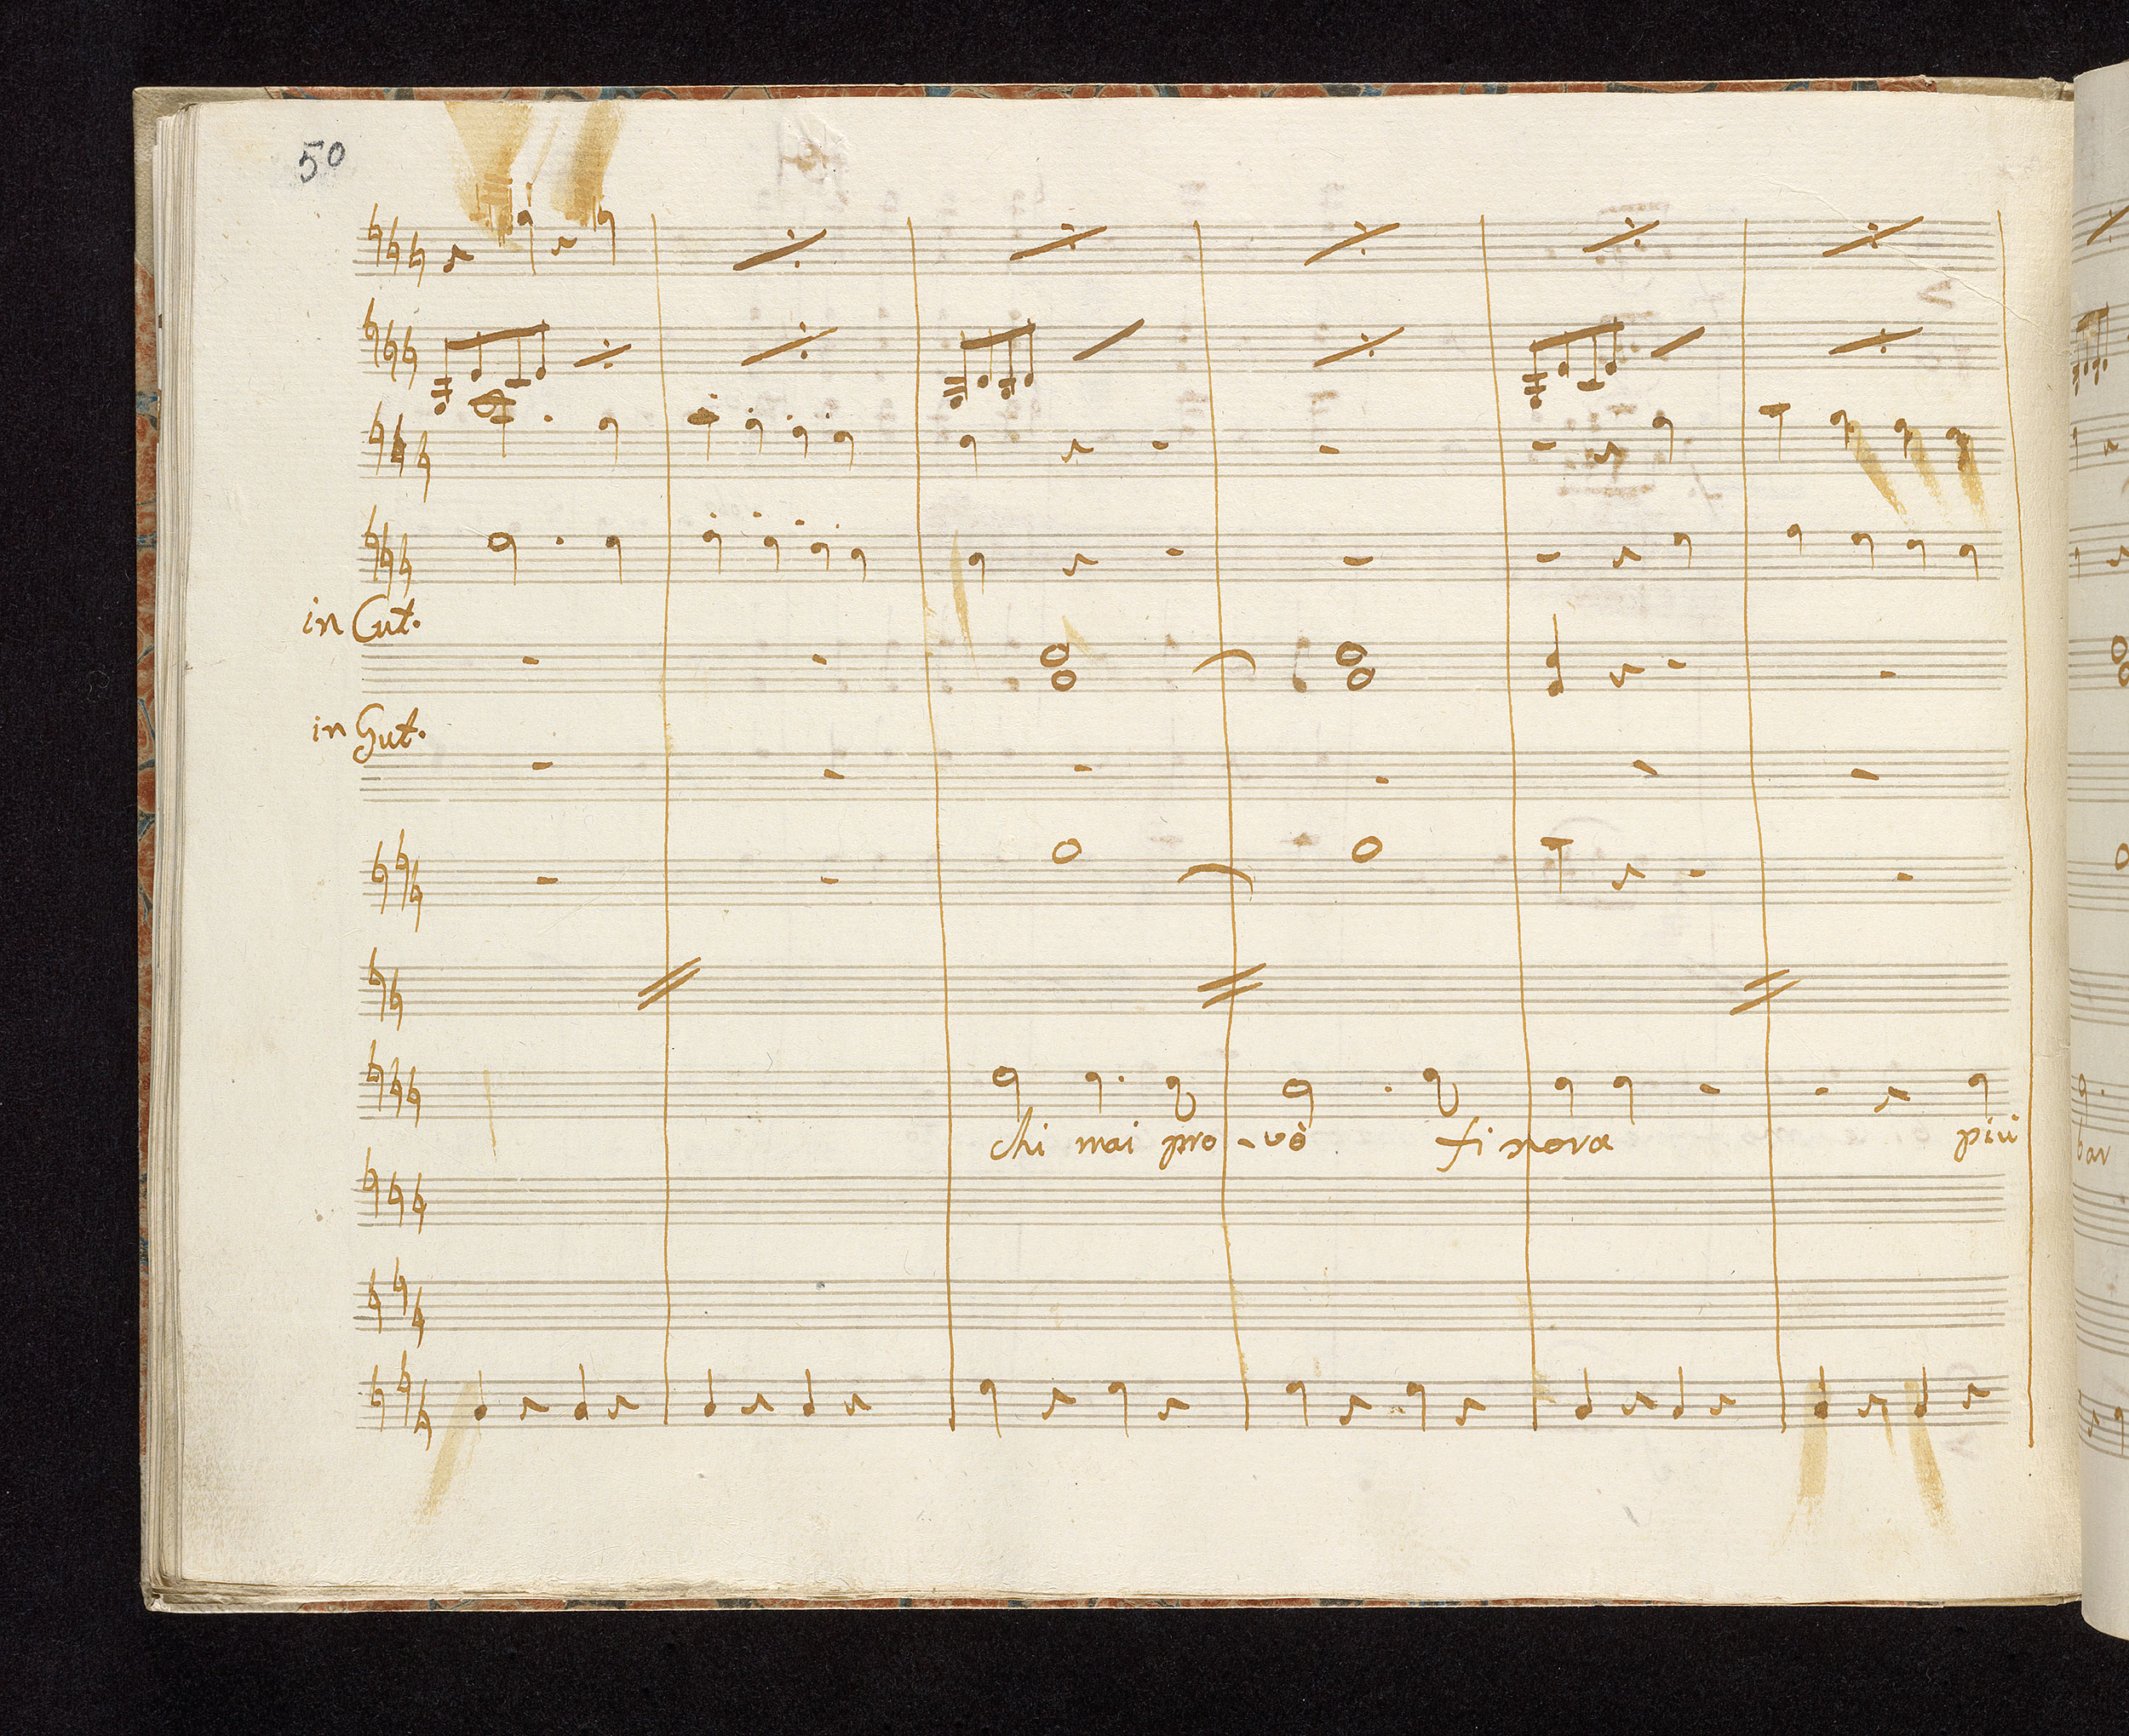 50
in Cut.
in Gut.
chi mai pro-vò finora più
bar